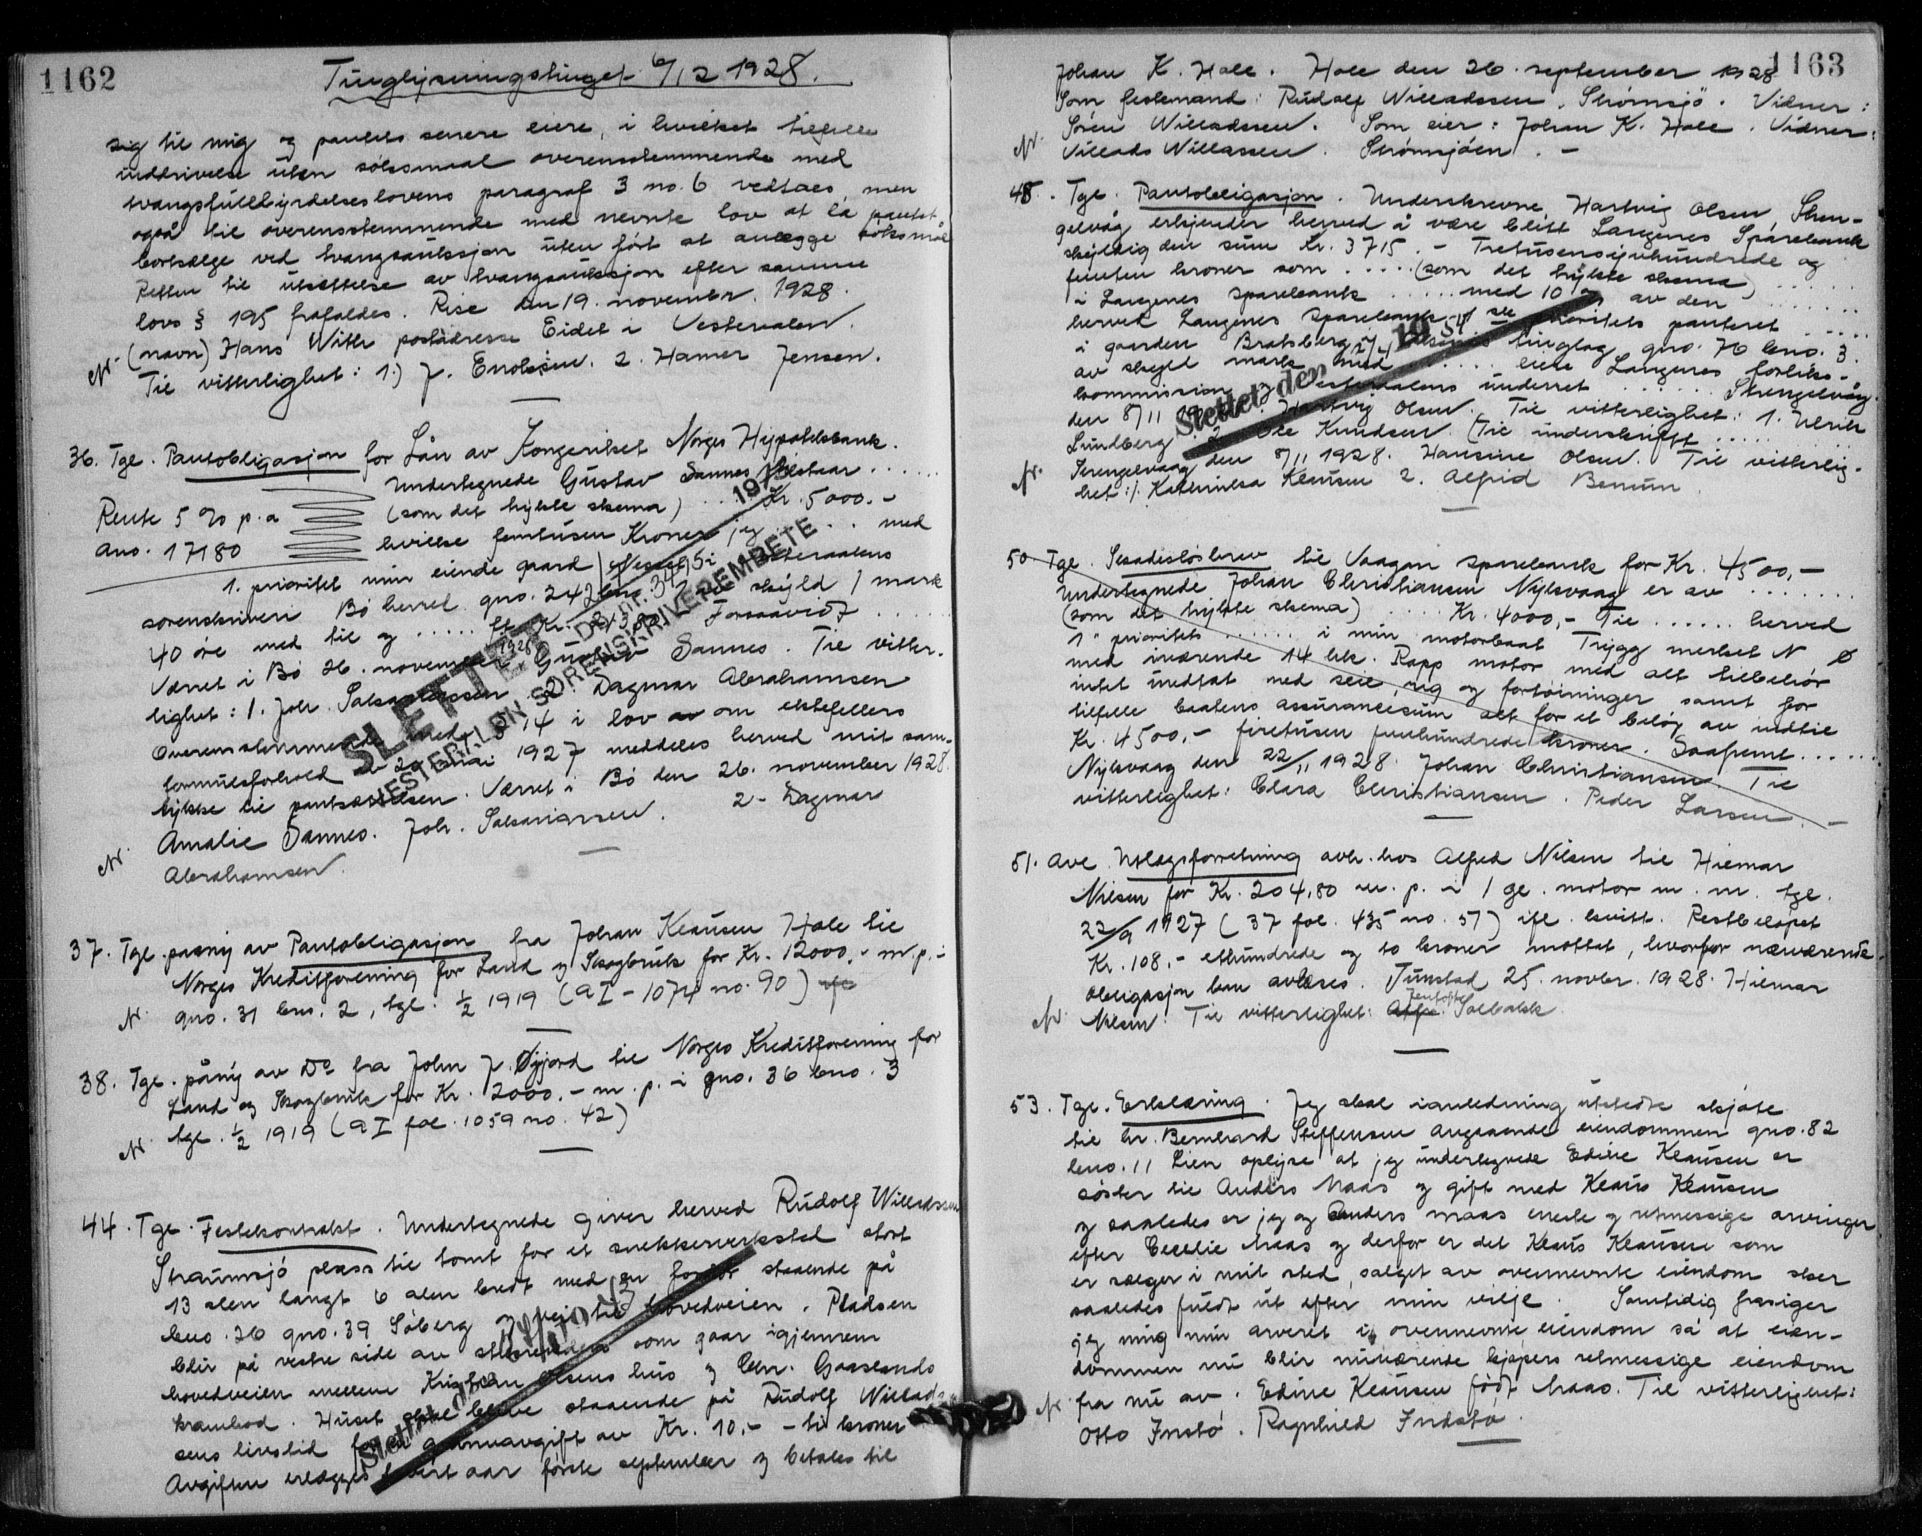 1162
Tinglysningstinget 6/12 1928.
sig til mig og pantets senere eiere, i hvilket tilfelle
inddrivelse uten søksmaal overensstemmende med
tvangsfuldbyrdelseslovens paragraf 3 no. 6 vedtaes, men
også til overensstemmende med nevnte lov at la pantet
bortsælge ved tvangsauksjon uten først at anlegge søksmål
Retten til utsættelse av tvangsauksjon efter samme
lovs § 195 frafaldes. Rise den 19. november 1928.
(navn) Hans With postadresse Eidet i Vesteraalen.
Til vitterlighet: 1.) J. Enoksen. 2. Hamer Jensen.
36. Tgl. Pantobligasjon for Lån av Kongeriket Norges Hypotekbank.
Undertegnede Gustav Sannes ......
(som det trykte skema) ... Kr. 5000.-
Rente 5 % p.a
hvilke femtusen Kroner jeg ..... med
Ano. 17180
1. prioritet min eiende gaard i Vesteraalens
sorenskriveri Bø herred gno. 242 skyld 1 mark
40 øre med til og ..... Forsaavidt .....
Værret i Bø 26. november 1928 Gustav Sannes. Til vitter-
lighet: 1. Joh. Salamonsen 2. Dagmar Abrahamsen
Overensstemmende med § 14 i lov om ektefellers
formuesforhold av 20 mai 1927 meddeles herved mit sam-
tykke til pantsættelsen. Værret i Bø den 26. november 1928.
Amalie Sannes. Joh. Salamonsen. 2- Dagmar
Abrahamsen.
SLETTET
VESTERÅLEN SORENSKRIVEREMBETE
37. Tgl. påny av Pantobligasjon fra Johan Klausen Hole til
Norges Kreditforening for Land og Skogbruk for Kr. 12000.- m. p. i
gno. 31 bno. 2, tgl. 1/2 1919 (9 I - 1074 no. 90)
38. Tgl. påny av Do fra John J. Øyjord til Norges Kreditforening for
Land og Skogbruk for Kr. 2000.- m. p. i gno. 36 bno. 3
tgl. 1/2 1919 (9 I fol. 1059 no. 42)
44. Tgl. Festekontrakt. Undertegnede giver herved Rudolf Willadssen
Straumsjø plass til tomt for et snekkerverksted stort
13 alen langt 6 alen bredt med en staaende på
bno. 26 gno. 39 Søberg og vei til hovedveien. Pladsen
blir på vestre side av som gaar igjennem
hovedveien mellem Kristian Olsens hus og Chr. Gaaslands
krambod. Huset skal blive staaende på Rudolf Willads-
sens livstid for en av Kr. 10.- - ti kroner
Avgiften erlægges hvert aar første september og betales til
Slettet den
1163
Johan K. Hole. Hole den 26. september 1928
Som festemand: Rudolf Willadssen, Strømsjø. Vidner:
Søren Willadssen. Som eier: Johan K. Hole. Vidner:
Villads Willassen. Strømsjøen. -
48. Tgl. Pantobligasjon. Underskrevne Hartvig Olsen, Stren-
gelvåg erkjender herved å være blitt Langenes Sparebank
skyldig den sum Kr. 3715.- Tretusensyvhundrede og
femten kroner som ..... (som det trykte skema) .....
i Langenes sparebank ..... med 10 % av den .....
herved Langenes sparebank 1ste prioritets panteret .....
i gaarden Bratsberg i tinglag, gno. 76 bno. 3.
av skyld mark med ..... eller Langenes forliks-
kommission og Vesteraalens underret ..... Strengelvåg.
den 8/11 1928. Hartvig Olsen. Til vitterlighet: 1. Ulrik
Lundberg. 2. Ole Knudsen. (Til underskrift .....
Strengelvaag den 8/11 1928. Hansine Olsen. Til vitterlig-
het: 1. Kathrinka Klausen 2. Alfrid Benum.
Slettet den
50 Tgl. Skadesløsbrev til Vaagan sparebank for Kr. 4500.-
Undertegnede Johan Christiansen Nyksvaag er av .......
(som det trykte skema) ..... Kr. 4000,- Til ...... herved
1' prioritets ....... i min motorbaat Trygg merket N Ø
med iværende 14 hk. Rapp motor med alt tilbehør
intet undtat med seil, rig og fortøininger samt for
tilfelle baatens assurancesum alt for et beløp av indtil
Kr. 4500,- firetusen femhundrede kroner. Saafremt.....
Nyksvaag den 22/11 1928. Johan Christiansen. Til
vitterlighet: Clara Christiansen. Peder Larsen. -
51. Avl. Utlægsforretning avh. hos Alfred Nilsen til Hilmar
Nilsen for Kr. 204,80 m. p. i 1 ge. motor m. m. tgl.
22/9 1927 (37 fol. 435 no. 57) ifl. kvitt. Restbeløpet
Kr. 108.- ethundrede og to kroner mottat, hvorfor nærværende
obligasjon kan avlæses. Tunstad 25. novbr. 1928. Hilmar
Nilsen. Til vitterlighet: Solbakk.
53. Tgl. Erklæring. Jeg skal i anledning utstedte skjøte
til hr. Bernhard Steffensen angaaende eiendommen gno. 82
bno. 11 Lien oplyse at jeg undertegnede Edine Klausen er
søster til Anders Maas og gift med Klaus Klausen
og saaledes er jeg og Anders Maas eneste og retmessige arvinger
efter Cecelie Maas og derfor er det Klaus Klausen som
er sælger i mit sted, salget av ovennevnte eiendom sker
saaledes fuldt ut efter min vilje. Samtidig frasiger
jeg mig min arveret i ovennevnte eiendom så at eien-
dommen nu blir nuværende kjøpers retmessige eiendom
fra nu av. Edine Klausen født Maas. Til vitterlighet:
Otto Instø. Ragnhild Indstø.